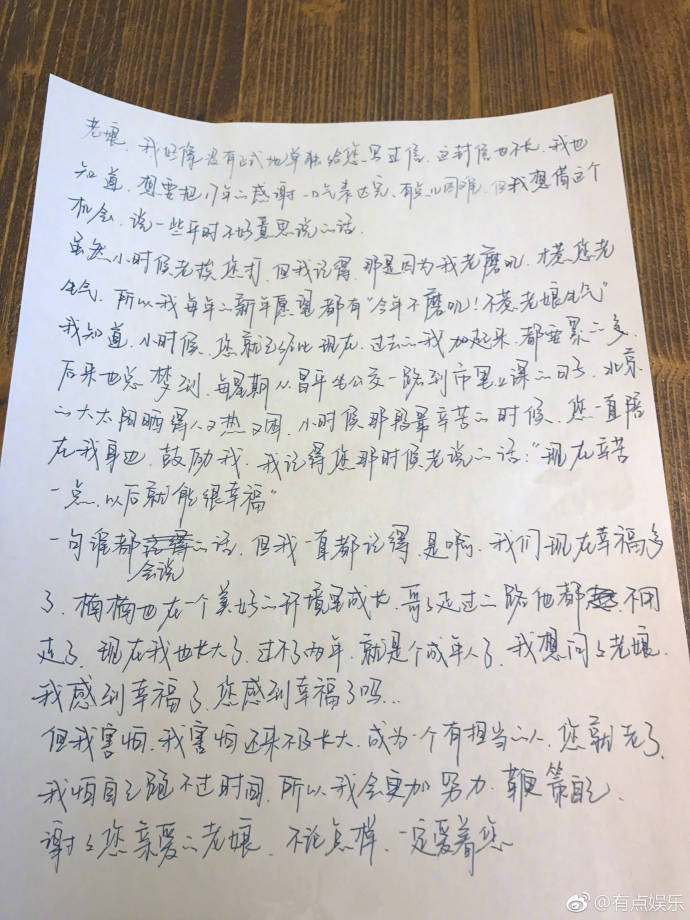 老娘，我好像没有正式地单独给您写过信，这封信也不长，我也
知道，想要把17年的感谢一口气表达完，有点儿困难，但我想借这个
机会，说一些平时不好意思说的话。
虽然小时候老挨您打，但我记得，那是因为我老磨叽，才惹您老
生气，所以我每年的新年愿望都有“今年不磨叽！不惹老娘生气”
我知道，小时候，您就已经比现在、过去的我加起来，都要累的多，
后来也总梦到，每星期从昌平坐公交一路到市里上课的日子，北京
的大太阳晒得人又热又困，小时候那段最辛苦的时候，您一直陪
在我身边，鼓励我，我记得您那时候老说的话：“现在辛苦
一点，以后就能很幸福”
一句谁都会说的话，但我一直都记得，是啊，我们现在幸福多
了，楠楠也在一个美好的环境里成长，哥哥走过的路他都不用
走了，现在我也长大了，过不了两年，就是个成年人了，我想问问老娘，
我感到幸福了，您感到幸福了吗...
但我害怕，我害怕还来不及长大，成为一个有担当的人，您就老了，
我怕自己跑不过时间，所以我会更加努力，鞭策自己，
谢谢您亲爱的老娘，不论怎样，一定爱着您
@有点娱乐